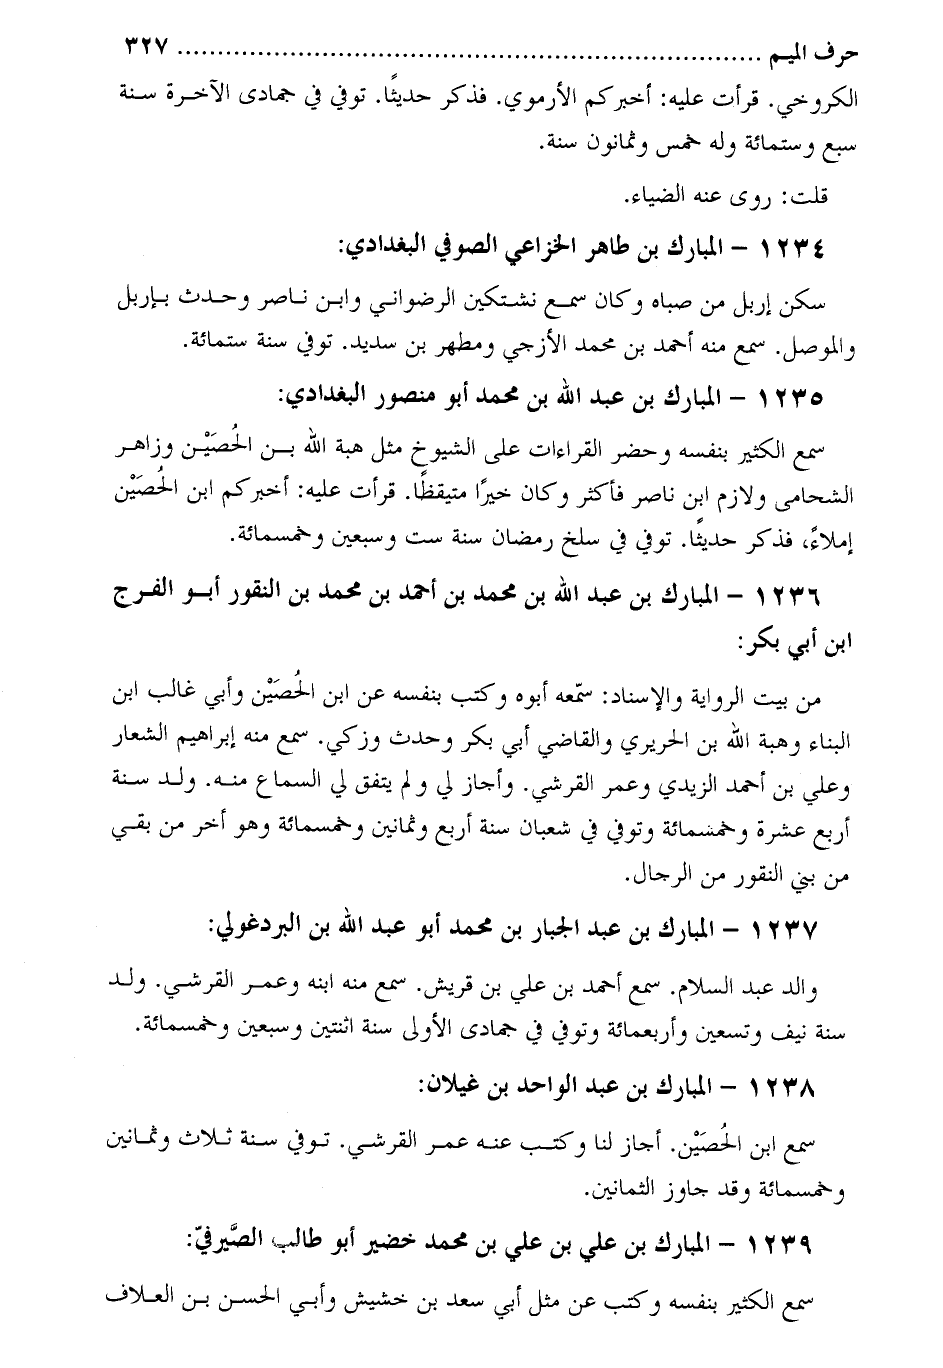 حرف الميم ........................................................................ ٣٢٧
الكروخي. قرأت عليه: أخبركم الأرموي. فذكر حديثًا. توفي في جمادى الآخرة سنة
سبع وستمائة وله خمس وثمانون سنة.
قلت: روى عنه الضياء.
١٢٣٤ – المبارك بن طاهر الخزاعي الصوفي البغدادي:
سكن إربل من صباه وكان سمع نشتكين الرضواني وابن ناصر وحدث بإربل
والموصل. سمع منه أحمد بن محمد الأزجي ومطهر بن سديد. توفي سنة ستمائة.
١٢٣٥ – المبارك بن عبد الله بن محمد أبو منصور البغدادي:
سمع الكثير بنفسه وحضر القراءات على الشيوخ مثل هبة الله بن الحُصَيْن وزاهر
الشحامى ولازم ابن ناصر فأكثر وكان خيرًا متيقظًا. قرأت عليه: أخبركم ابن الحُصَيْن
إملاءً، فذكر حديثًا. توفي في سلخ رمضان سنة ست وسبعين وخمسمائة.
١٢٣٦ – المبارك بن عبد الله بن محمد بن أحمد بن محمد بن النقور أبو الفرج
ابن أبي بكر:
من بيت الرواية والإسناد: سمّعه أبوه وكتب بنفسه عن ابن الحُصَيْن وأبي غالب ابن
البناء وهبة الله بن الحريري والقاضي أبي بكر وحدث وزكي. سمع منه إبراهيم الشعار
وعلي بن أحمد الزيدي وعمر القرشي. وأجاز لي ولم يتفق لي السماع منه. ولد سنة
أربع عشرة وخمسمائة وتوفي في شعبان سنة أربع وثمانين وخمسمائة وهو أخر من بقي
من بني النقور من الرجال.
١٢٣٧ – المبارك بن عبد الجبار بن محمد أبو عبد الله بن البردغولي:
والد عبد السلام. سمع أحمد بن علي بن قريش. سمع منه ابنه وعمر القرشي. ولد
سنة نيف وتسعين وأربعمائة وتوفي في جمادى الأولى سنة اثنتين وسبعين وخمسمائة.
١٢٣٨ – المبارك بن عبد الواحد بن غيلان:
سمع ابن الحُصَيْن. أجاز لنا وكتب عنه عمر القرشي. توفي سنة ثلاث وثمانين
وخمسمائة وقد جاوز الثمانين.
١٢٣٩ – المبارك بن علي بن علي بن محمد خضير أبو طالب الصَّيرفيّ:
سمع الكثير بنفسه وكتب عن مثل أبي سعد بن خشيش وأبي الحسن بن العلاف